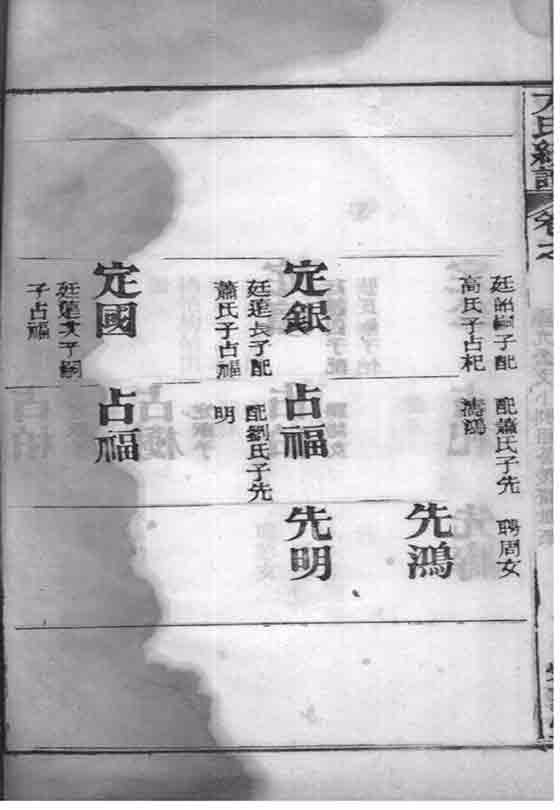 卷之
廷貽嗣子配
高氏子占杞
定銀
廷蓮長子配
蕭氏子占福
定國
廷蓮次子嗣
子占福
配蕭氏子先
濤鴻
占福
配劉氏子先
明
占福
聘周女
先鴻
先明